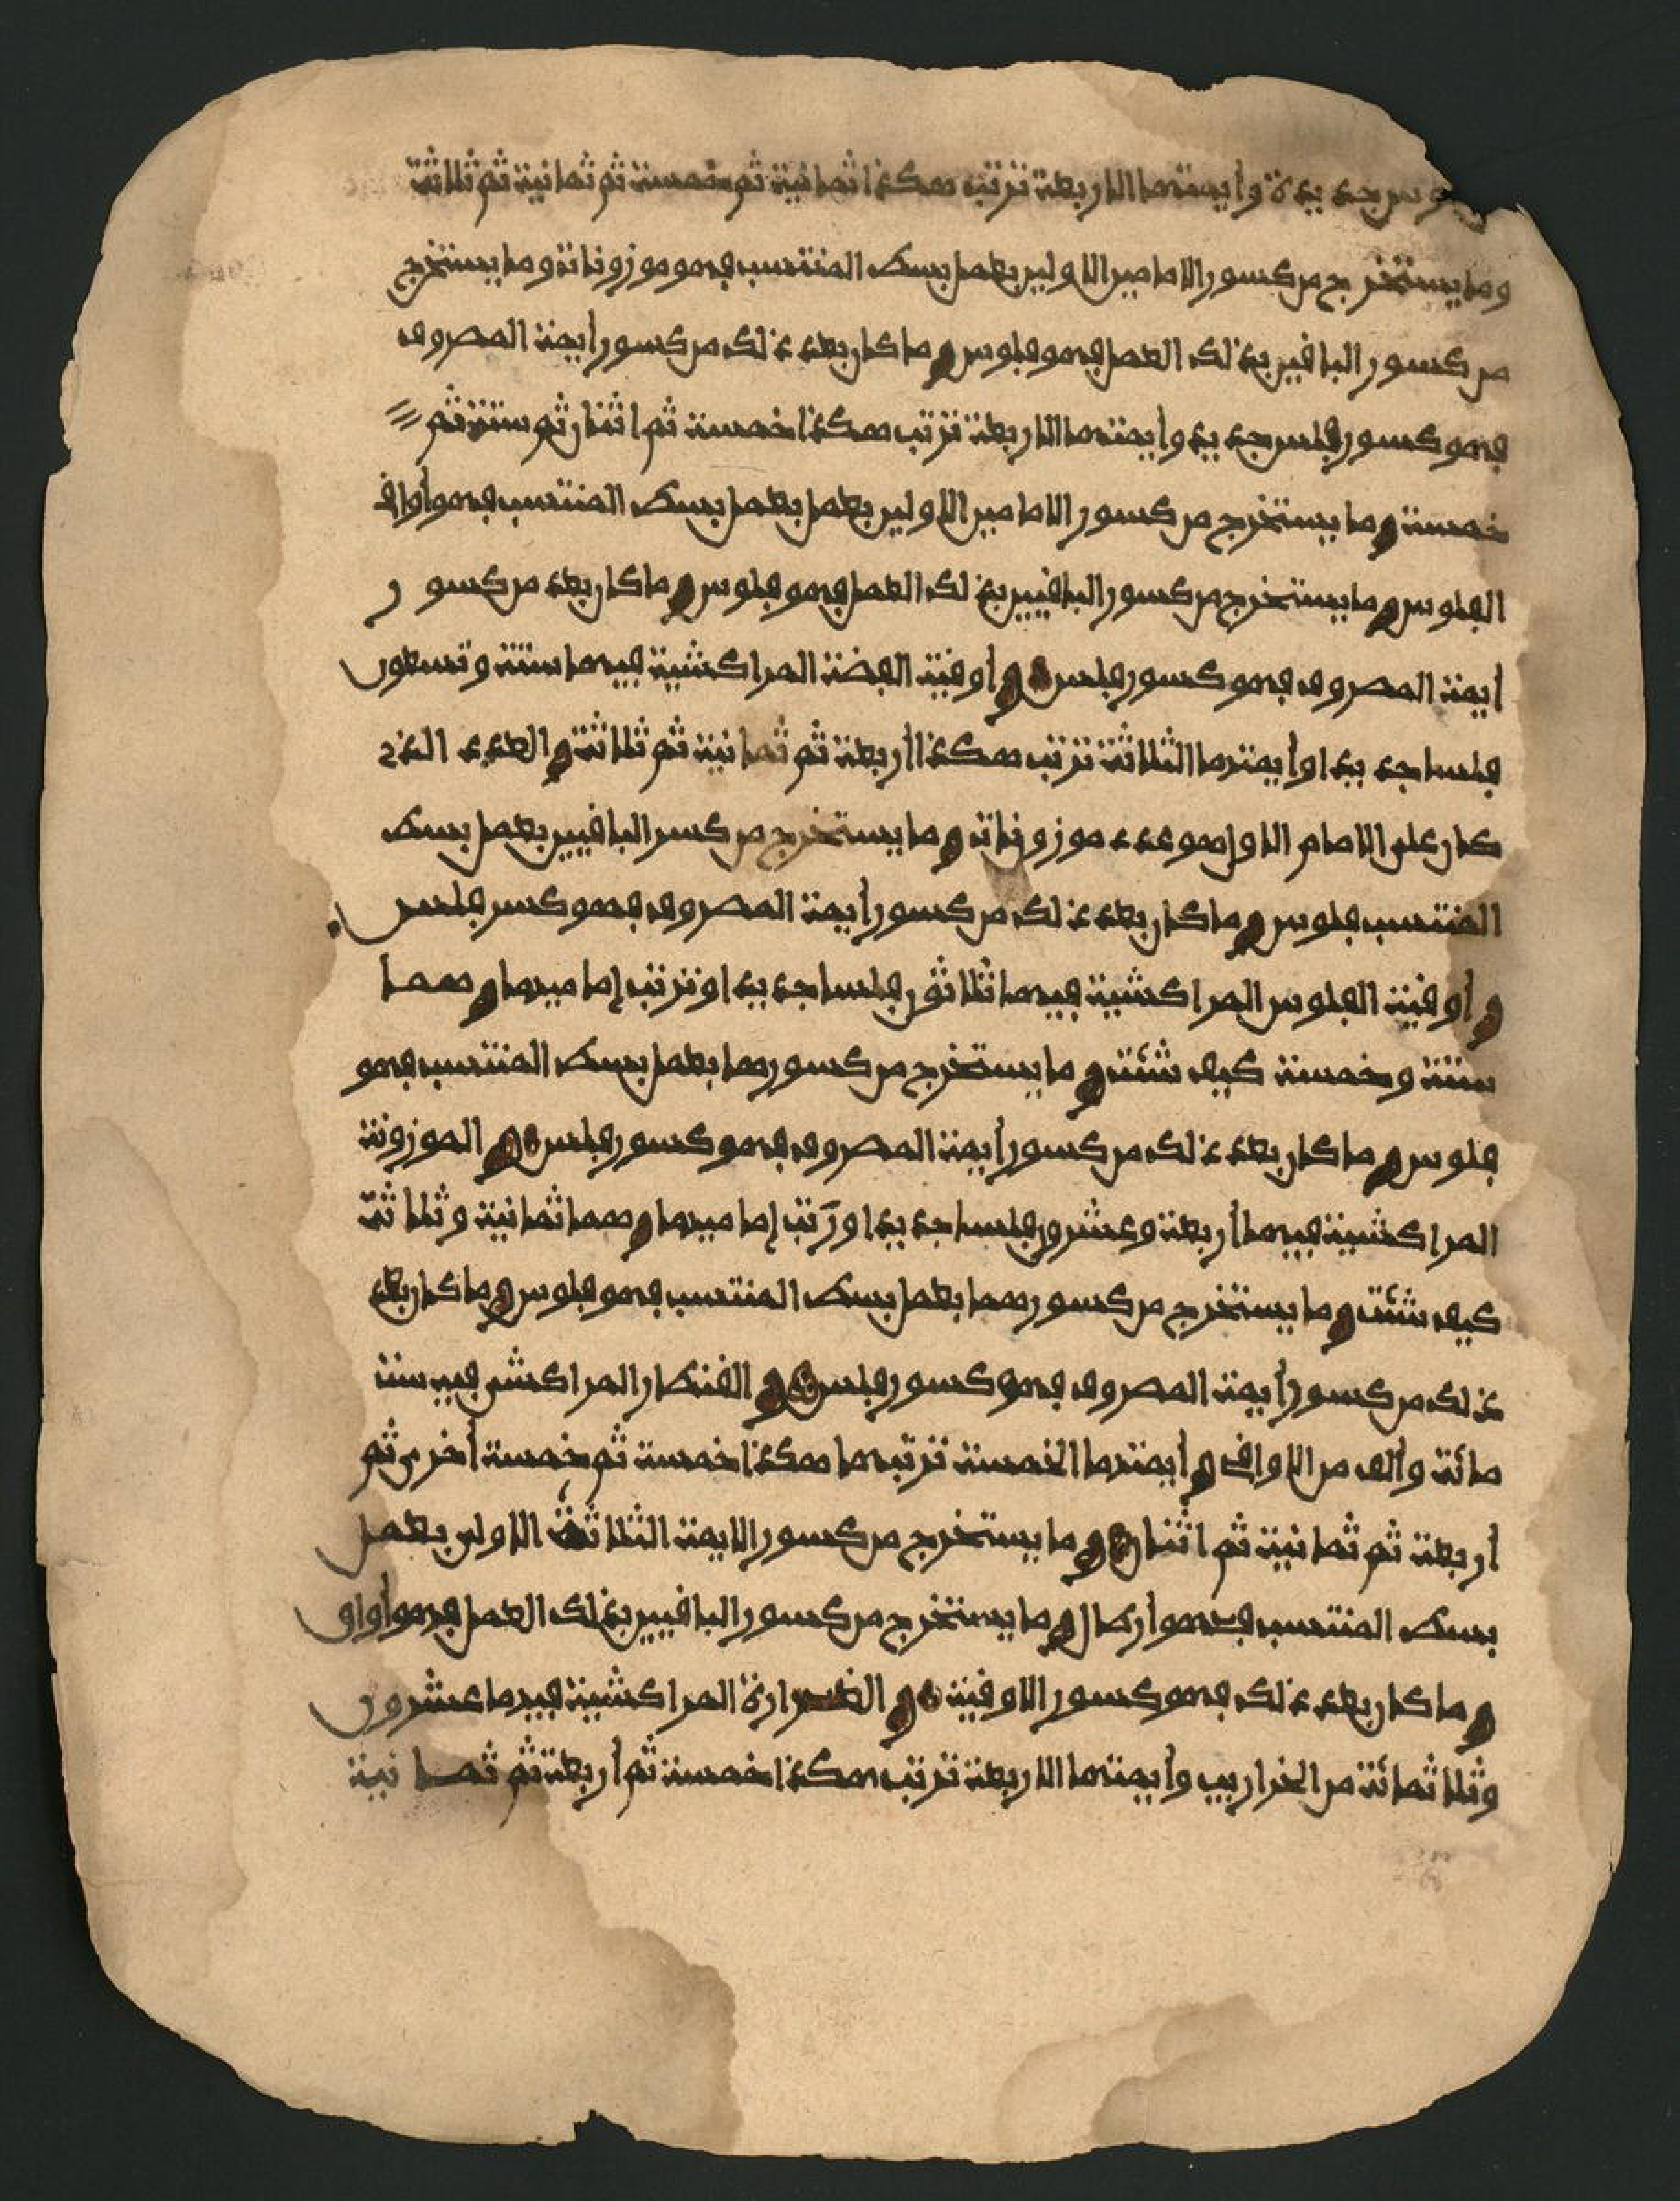 جديدة وأيمتها الاربعة ترتب هكذا ثمانية ثم خمسة ثم ثمانية ثم ثلاثة
وما يستخرج من كسور الامامين الاولين بعمل بسط المنتسب فهو موزوناته وما يستخرج
من كسور الباقين بذلك العمل فهو فلوس وما كان بعد ذلك من كسور أيمة المصروف
فهو كسور فلس جديد وأيمتها الاربعة ترتب هكذا خمسة ثم اثنان ثم ستة ثم
خمسة وما يستخرج من كسور الامامين الاولين بعمل بعمل بسط المنتسب فهو أواقي
الفلوس وما يستخرج من كسور الباقيين بذلك العمل فهو فلوس وما كان بعد من كسور
أيمة المصروف فهو كسور فلس وأوقية الفضة المراكشية فيها ستة وتسعون
فلسا جديدا وأيمتها الثلاثة ترتب هكذا أربعة ثم ثمانية ثم ثلاثة والعدد الذي
كان على الامام الاول هو عدد موزوناته وما يستخرج من كسر الباقيين بعمل بسط
المنتسب فلوس وما كان بعد ذلك من كسور أيمة المصروف فهو كسر فلس
وأوقية الفلوس المراكشية فيها ثلاثون فلسا جديدا وترتب إماميها وهما
ستة وخمسة كيف شئت وما يستخرج من كسورهما بعمل بسط المنتسب فهو
فلوس وما كان بعد ذلك من كسور أيمة المصروف فهو كسور فلس والموزونة
المراكشية فيها أربعة وعشرون فلسا جديدا ورَتّب إماميها وهما ثمانية وثلاثة
كيف شئت وما يستخرج من كسورهما بعمل بسط المنتسب فهو فلوس وما كان بعد
ذلك من كسور أيمة المصروف فهو كسور فلس والقنطار المراكشي فيه ستة
مائة وألف من الاواقي وأيمتها الخمسة ترتبها هكذا خمسة ثم خمسة أخرى ثم
أربعة ثم ثمانية ثم اثنان وما يستخرج من كسور الايمة الثلاثة الاولى بعمل
بسط المنتسب فهو أرطال وما يستخرج من كسور الباقيين بذلك العمل فهو أواق
وما كان بعد ذلك فهو كسور الاوقية والغرارة المراكشية فيها عشرون
وثلاثمائة من الخراريب وأيمتها الاربعة ترتب هكذا خمسة ثم أربعة ثم ثمانية